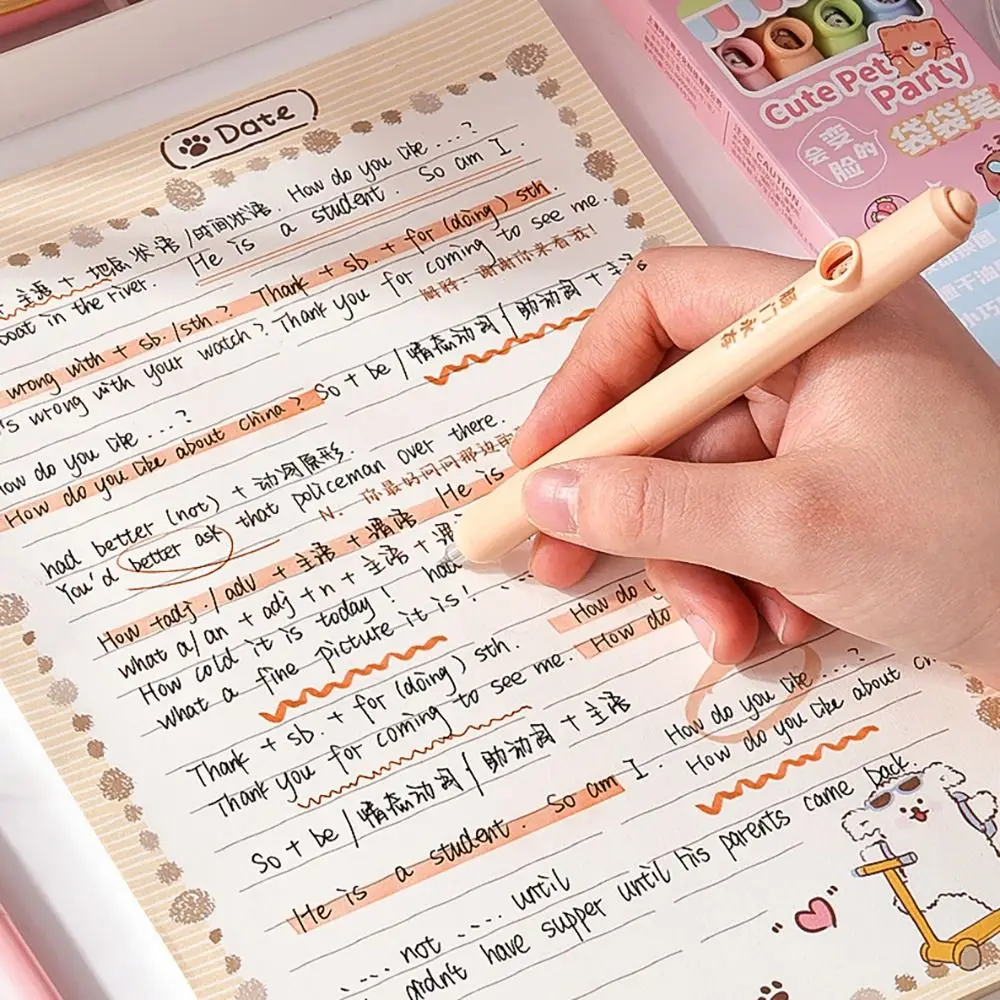 Date
How do you like ...?
主语 + 地点状语 / 时间状语.
He is a student. So am I.
boat in the river.
wrong with + sb. / sth.? Thank + sb. + for (doing) sth
's wrong with your watch? Thank you for coming to see me.
解释: 谢谢你来看我!
How do you like ...? So + be / 情态动词 / 助动词 + 主
How do you like about china?
had better (not) + 动词原形.
You'd better ask that policeman over there.
你最好问问那边
N.
How + adj. / adv + 主语 + 谓语 He is
what a/an + adj + n + 主语 + 谓
How cold it is today!
what a fine picture it is!
How do
How do
Thank + sb. + for (doing) sth.
Thank you for coming to see me.
How do you like ...?
How do you like about
So + be / 情态动词 / 助动词 + 主语
He is a student. So am I.
... not ... until
didn't have supper until his parents came back.
Cute Pet Party
会变脸的
袋袋笔
CAUTION